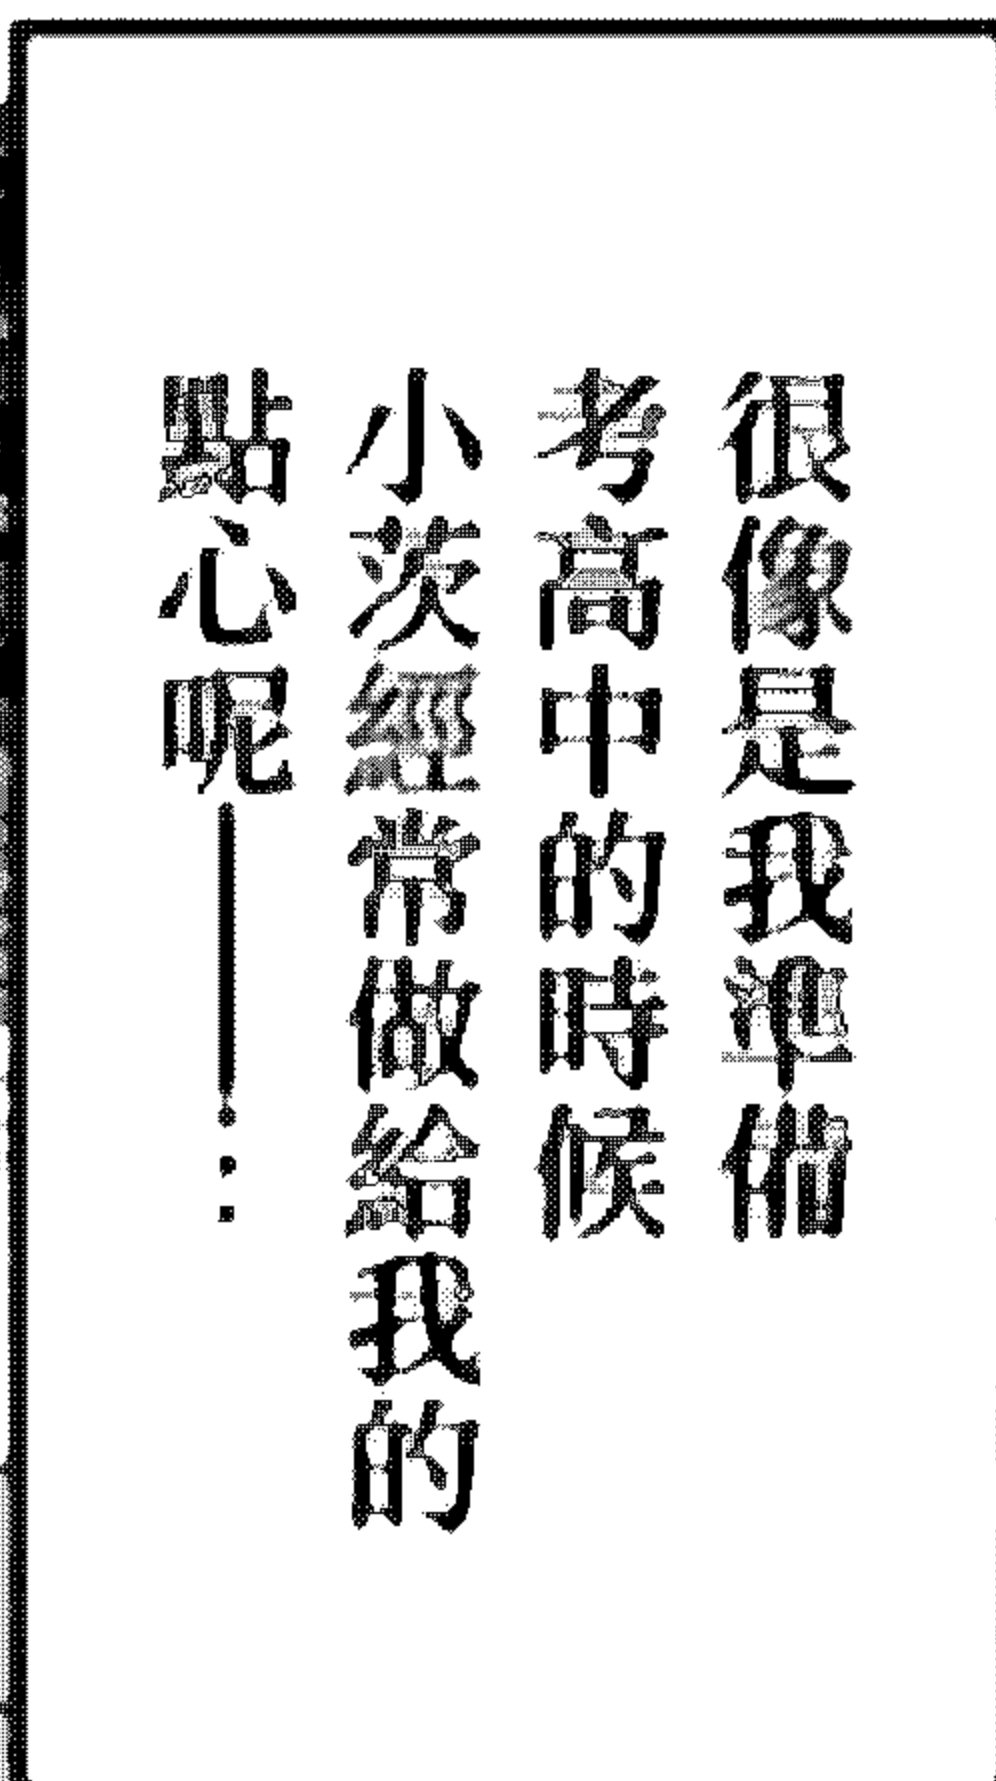 很像是我準備
考高中的時候
小茨經常做給我的
點心呢——…